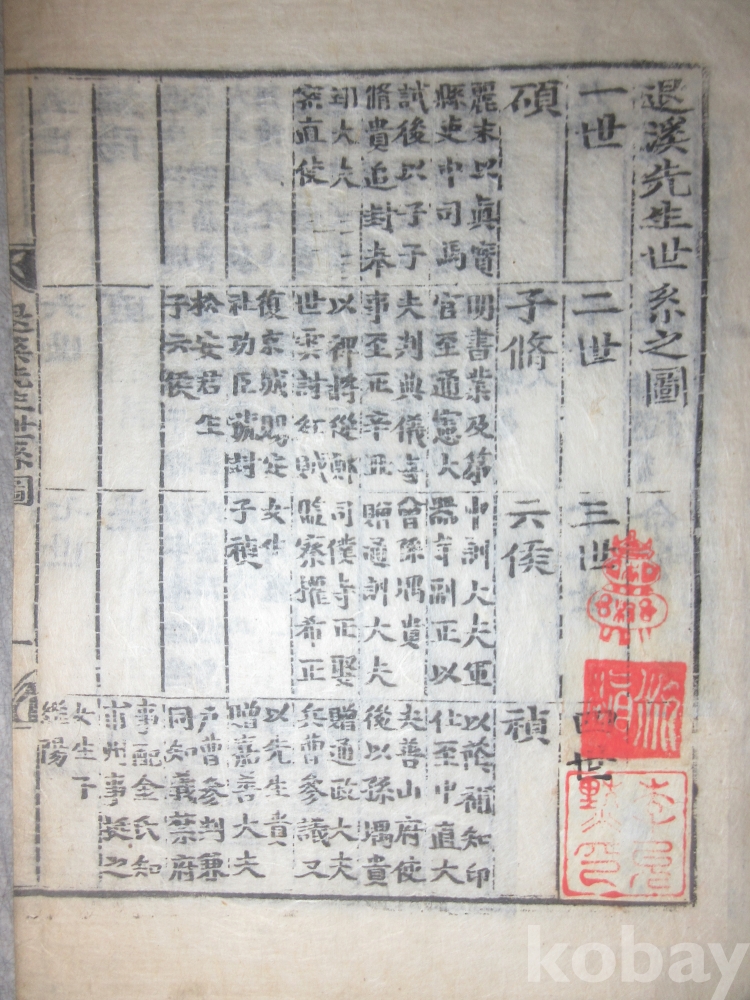 退溪先生世系之圖
一世
碩
麗末以眞寶
縣吏中司馬
試後以子子
脩貴追封奉
翊大夫
密直使
二世
子脩
明書業及第
官至通憲大
夫判典儀寺
事至正辛丑
以裨將從鄭
世雲討紅賊
復京城賜安
社功臣號封
松安君生
子云侯
三世
云侯
中訓大夫軍
器寺副正以
曾孫堣貴
贈通訓大夫
司僕寺正娶
監察權希正
女生
子禎
四世
禎
以蔭補知印
仕至中直大
夫善山府使
後以孫堣貴
贈通政大夫
兵曹參議又
以先生貴
贈嘉善大夫
戶曹參判兼
同知義禁府
事配金氏知
甫州事挺之
女生子
繼陽
退溪先生世系圖
一
kobay